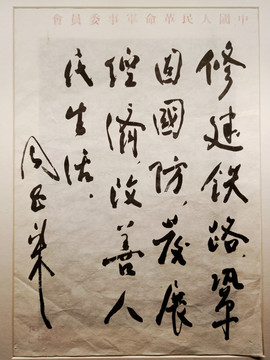 中國人民革命軍事委員會
修建鉄路，鞏
固國防，發展
經濟，改善人
民生活。
周恩来